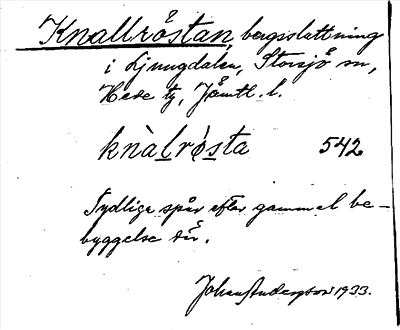 Knallröstan, bergsslåttning
i Ljungdalen, Storsjö sn,
Hede tg, Jämtl. l.
knàlrǿsta 542
Tydliga spår efter gammal be-
byggelse där.
Johan Anderson 1933.